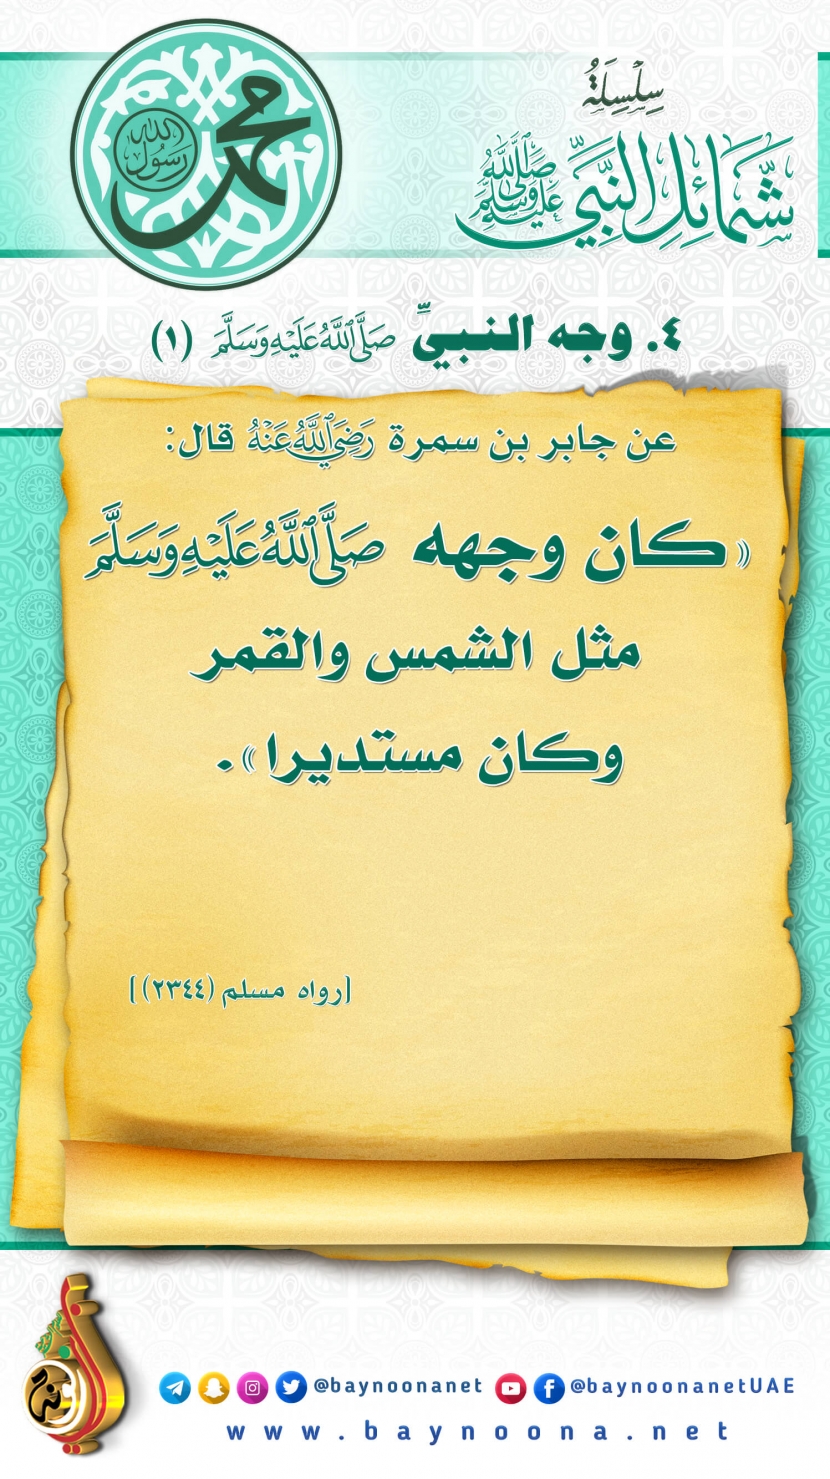 محمد
رسول
الله
سِلْسِلَةُ
شَمَائِلِ النَّبِيِّ صَلَّى اللَّهُ عَلَيْهِ وَسَلَّمَ
٤. وجه النبيِّ صَلَّى اللَّهُ عَلَيْهِ وَسَلَّمَ (١)
عن جابر بن سمرة رَضِيَ اللَّهُ عَنْهُ قال:
«كان وجهه صَلَّى اللَّهُ عَلَيْهِ وَسَلَّمَ
مثل الشمس والقمر
وكان مستديرا».
[رواه مسلم (٢٣٤٤)]
@baynoonanet @baynoonanetUAE
www.baynoona.net